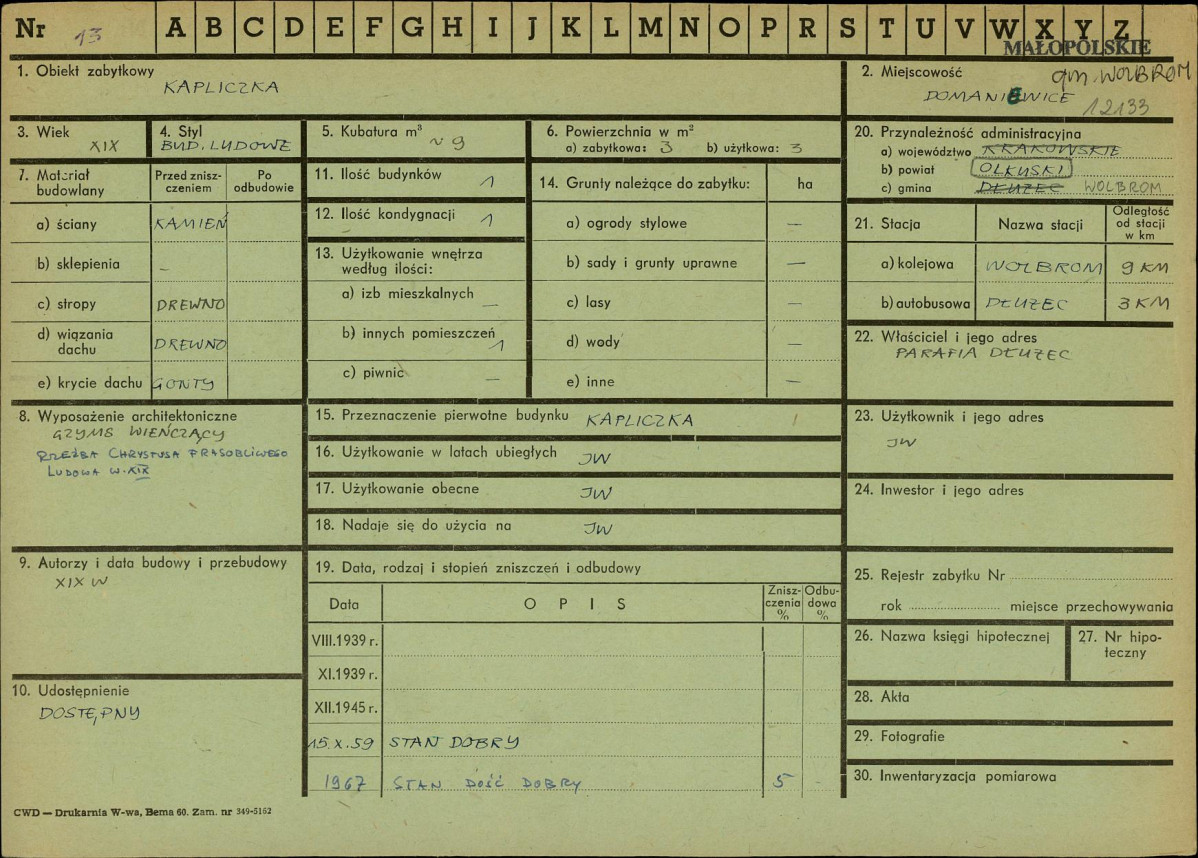 Nr 13 A B C D E F G H I J K L M N O P R S T U V W X Y Z
MAŁOPOLSKIE
1. Obiekt zabytkowy
KAPLICZKA
2. Miejscowość
gm. WOLBROM
DOMANIEWICE
12133
3. Wiek
XIX
4. Styl
BUD. LUDOWE
5. Kubatura m³
~ 9
6. Powierzchnia w m²
a) zabytkowa: 3 b) użytkowa: 3
20. Przynależność administracyjna
a) województwo KRAKOWSKIE
b) powiat OLKUSKI
c) gmina DŁUŻEC WOLBROM
7. Materiał budowlany
Przed zniszczeniem
Po odbudowie
a) ściany KAMIEŃ
b) sklepienia –
c) stropy DREWNO
d) wiązania dachu DREWNO
e) krycie dachu GONTY
11. Ilość budynków 1
12. Ilość kondygnacji 1
13. Użytkowanie wnętrza według ilości:
a) izb mieszkalnych –
b) innych pomieszczeń 1
c) piwnic –
14. Grunty należące do zabytku: ha
a) ogrody stylowe –
b) sady i grunty uprawne –
c) lasy –
d) wody –
e) inne –
21. Stacja Nazwa stacji Odległość od stacji w km
a) kolejowa WOLBROM 9 KM
b) autobusowa DŁUŻEC 3 KM
22. Właściciel i jego adres
PARAFIA DŁUŻEC
8. Wyposażenie architektoniczne
GZYMS WIEŃCZĄCY
RZEŹBA CHRYSTUSA FRASOBLIWEGO
LUDOWA W. XIX
15. Przeznaczenie pierwotne budynku KAPLICZKA
16. Użytkowanie w latach ubiegłych JW
17. Użytkowanie obecne JW
18. Nadaje się do użycia na JW
23. Użytkownik i jego adres
JW
24. Inwestor i jego adres
9. Autorzy i data budowy i przebudowy
XIX W
19. Data, rodzaj i stopień zniszczeń i odbudowy
Data OPIS Zniszczenia % Odbudowa %
VIII.1939 r.
XI.1939 r.
XII.1945 r.
15.X.59 STAN DOBRY
1967 STAN DOŚĆ DOBRY 5 -
25. Rejestr zabytku Nr
rok miejsce przechowywania
26. Nazwa księgi hipotecznej
27. Nr hipoteczny
10. Udostępnienie
DOSTĘPNY
28. Akta
29. Fotografie
30. Inwentaryzacja pomiarowa
CWD — Drukarnia W-wa, Bema 60. Zam. nr 349-5162